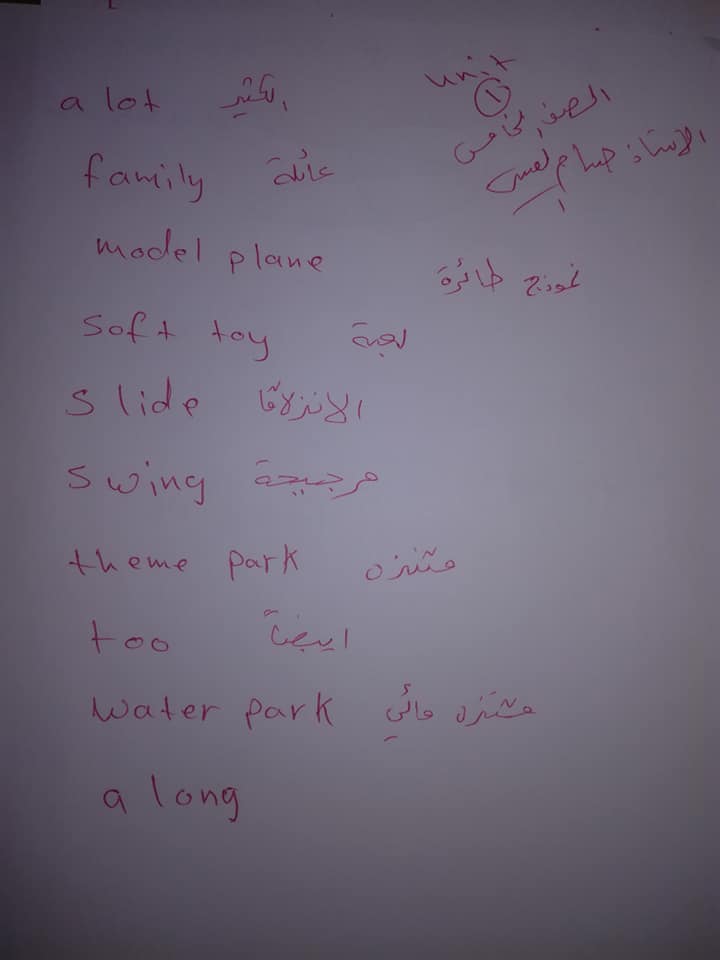 unit
١
الصف الخامس
الاستاذ حسام
a lot الكثير
family عائلة
model plane نموذج طائرة
soft toy لعبة
slide الانزلاقا
swing مرجيحة
theme park متنزه
too ايضاً
water park متنزه مائي
a long